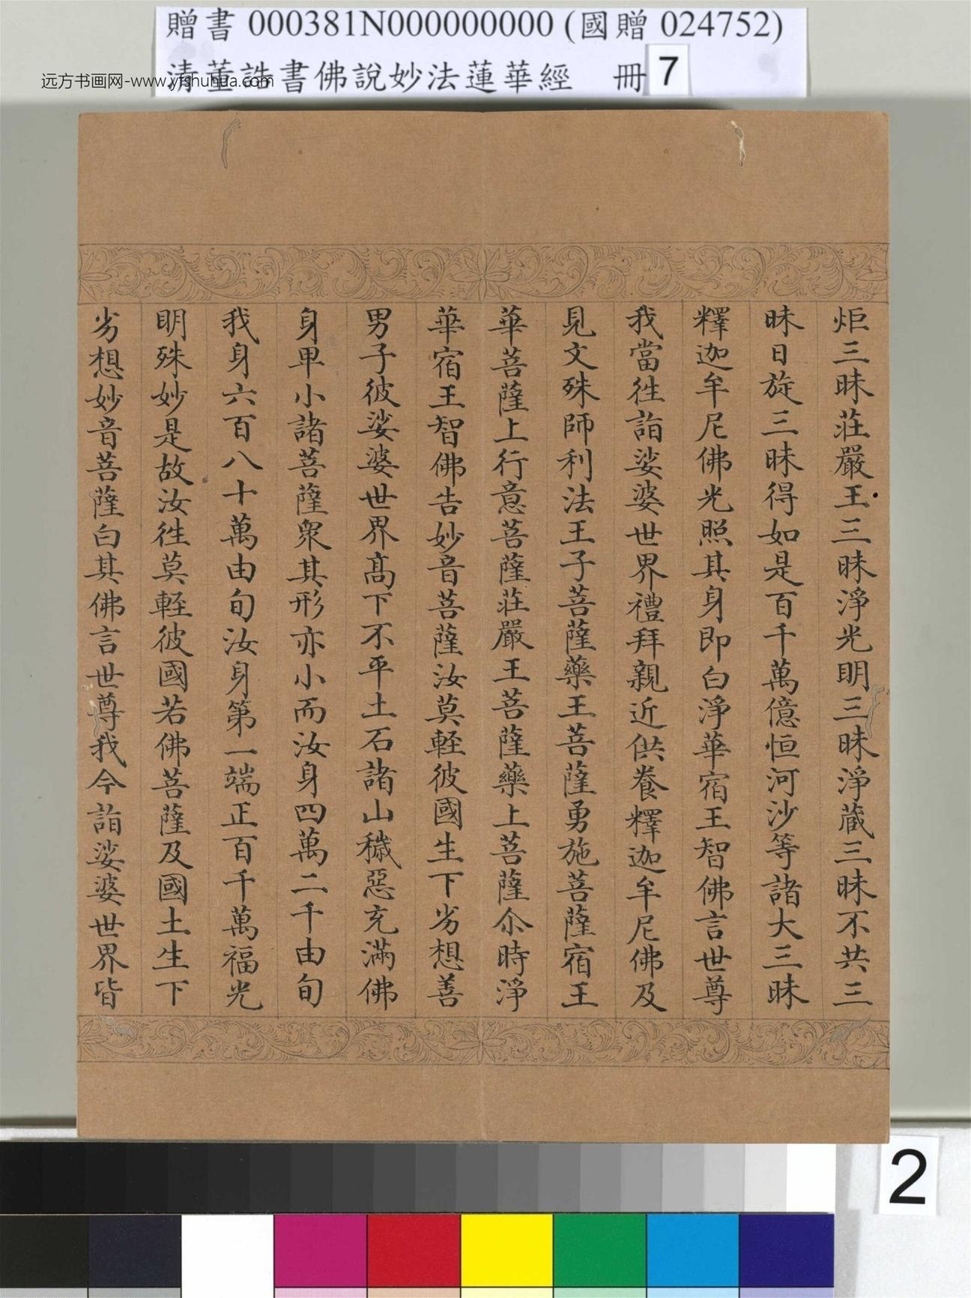 贈書 000381N000000000 (國贈 024752)
清董誥書佛說妙法蓮華經 冊 7
远方书画网-www.yfshuhua.com
炬三昧莊嚴王三昧淨光明三昧淨蔵三昧不共三
昧日旋三昧得如是百千萬億恒河沙等諸大三昧
釋迦牟尼佛光照其身即白淨華宿王智佛言世尊
我當往詣娑婆世界禮拜親近供養釋迦牟尼佛及
見文殊師利法王子菩薩藥王菩薩勇施菩薩宿王
華菩薩上行意菩薩莊嚴王菩薩藥上菩薩尒時淨
華宿王智佛告妙音菩薩汝莫軽彼國生下劣想善
男子彼娑婆世界髙下不平土石諸山穢惡充滿佛
身卑小諸菩薩衆其形亦小而汝身四萬二千由旬
我身六百八十萬由旬汝身第一端正百千萬福光
明殊妙是故汝往莫軽彼國若佛菩薩及國土生下
劣想妙音菩薩白其佛言世尊我今詣娑婆世界皆
2